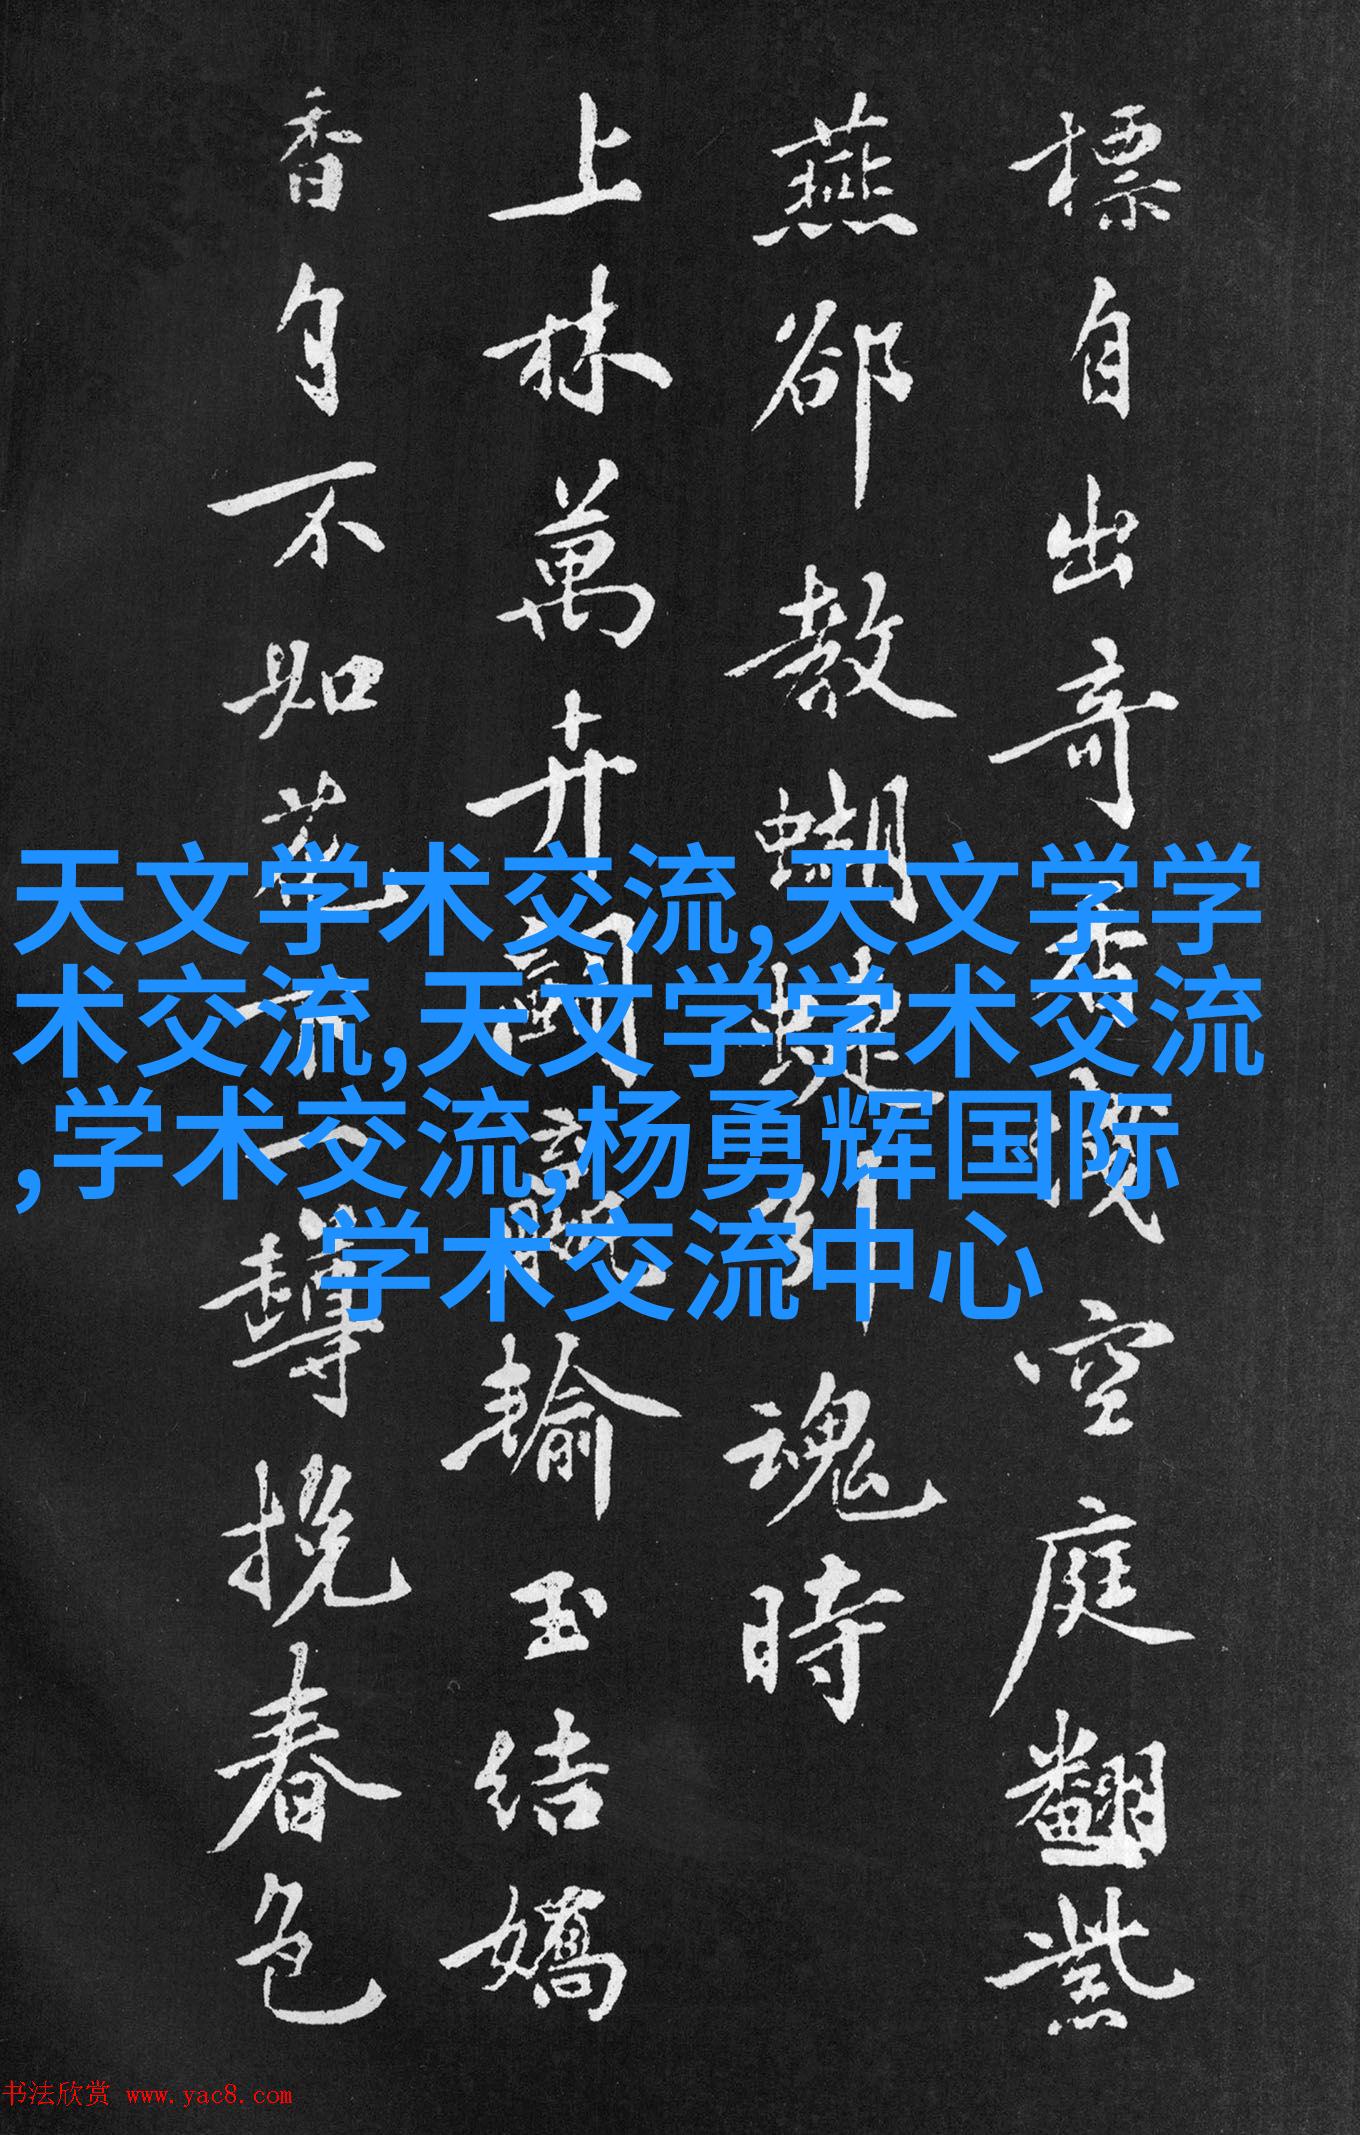 標自出奇香淺空庭翻紫
燕卻教蝴蝶引魂時
上林萬卉鬭輸玉結嬌
香自不如花下一尊挽春色
天文学术交流,天文学学
术交流,天文学学术交流
,学术交流,杨勇辉国际
学术交流中心
书法欣赏 www.yac8.com